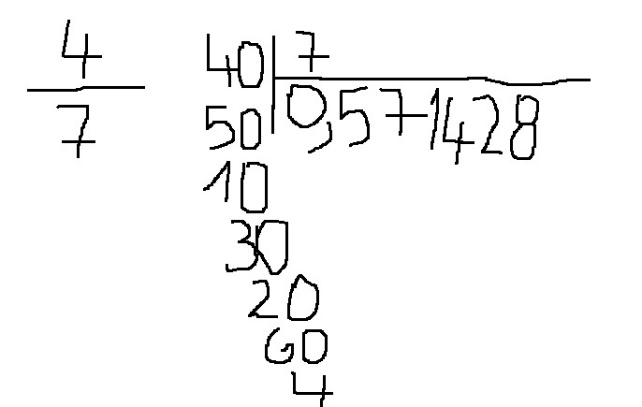 4
7
40 7
50 0,571428
10
30
20
60
4